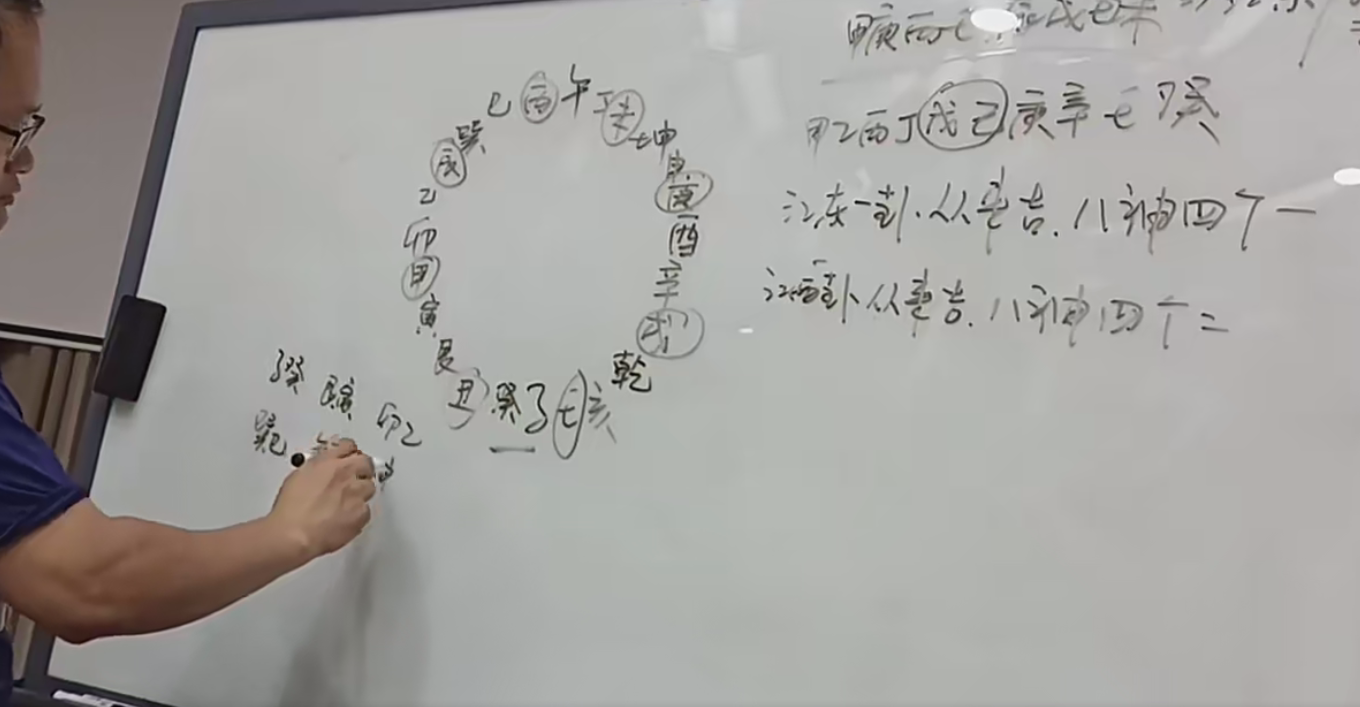 巳丙午丁未坤申庚酉辛戌乾亥壬子癸丑艮寅甲卯乙辰巽
甲乙丙丁戊己庚辛壬癸
江东一卦从来吉.八神四个一
江西一卦从来吉.八神四个二
子癸 艮寅 卯乙
巽巳